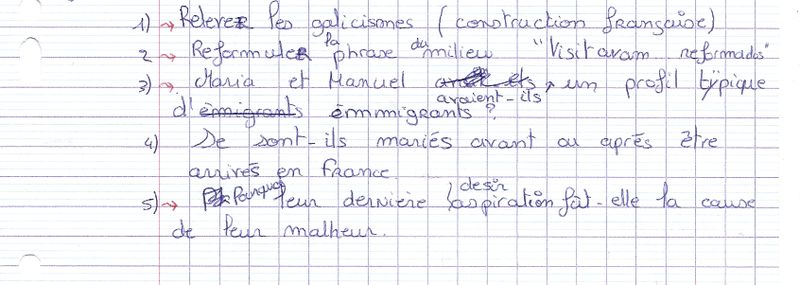 1) → Relever les galicismes (construction française)
2 → Reformuler la phrase du milieu "Visitavam reformados"
3) → Maria et Manuel avaient-ils un profil typique
d'émigrants émmigrants ?
4) Se sont-ils mariés avant ou après être
arrivés en France.
5) → Pourquoi leur dernière désir aspiration fût-elle la cause
de leur malheur.